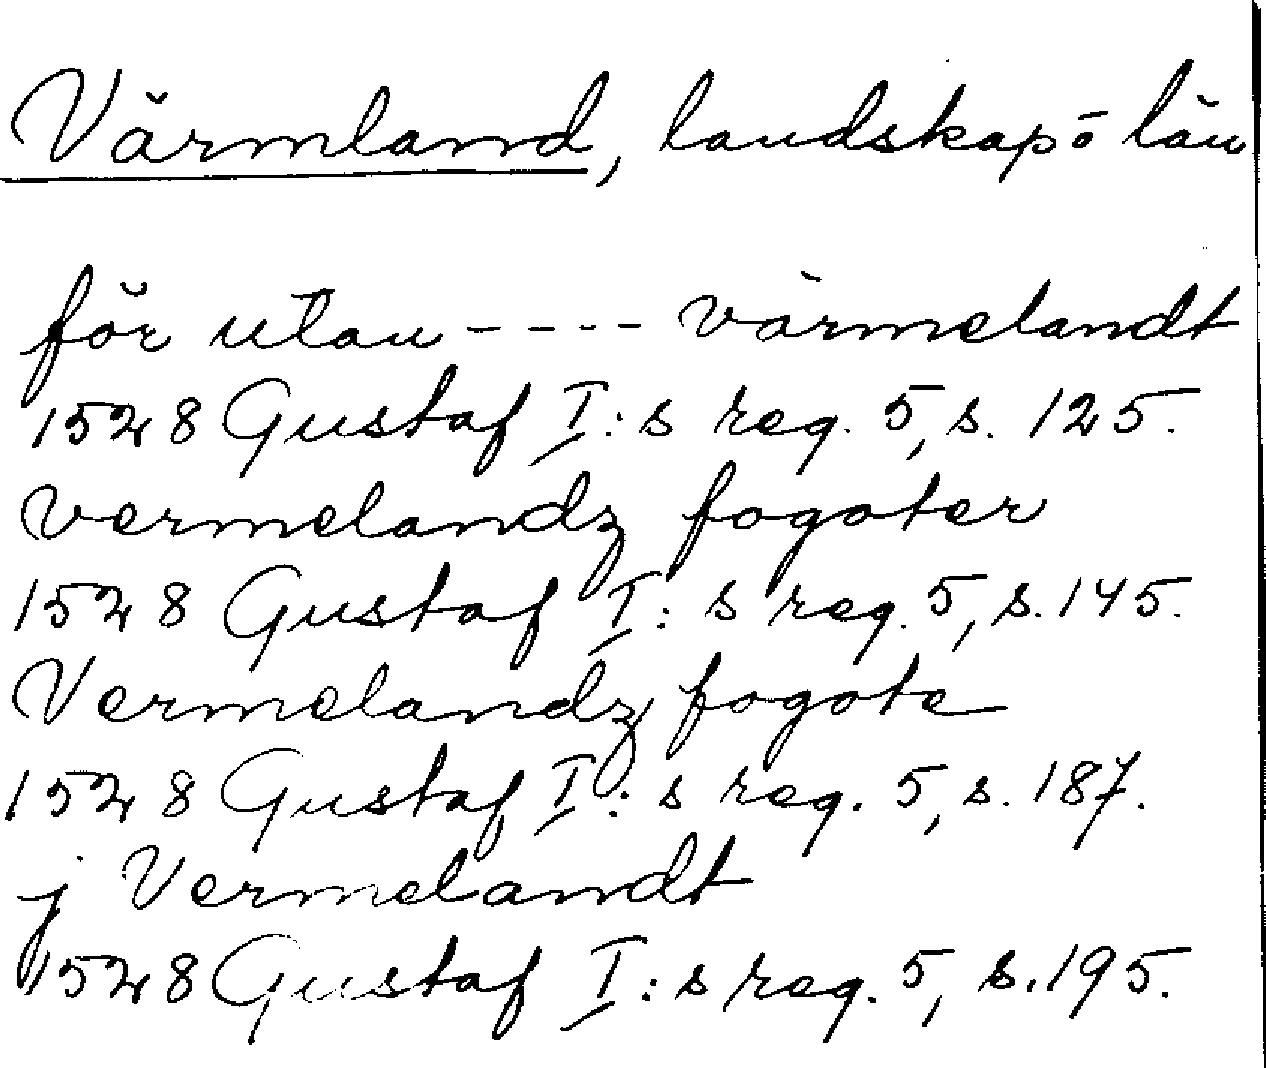 Värmland, landskap o län
för utan ---- värmelandt
1528 Gustaf I:s reg. 5, s. 125.
vermelandz fogoter
1528 Gustaf I:s reg. 5, s. 145.
Vermelandz fogote
1528 Gustaf I:s reg. 5, s. 187.
j Vermelandt
1528 Gustaf I:s reg. 5, s. 195.